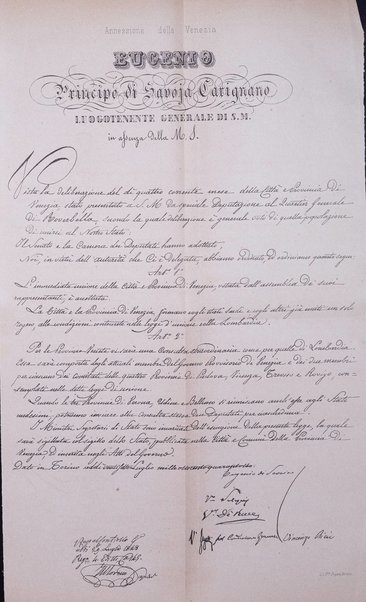 Annessione della Venezia
EUGENIO
Principe di Savoja Carignano
LUOGOTENENTE GENERALE DI S.M.
in assenza della M. S.
Vista la deliberazione del dì quattro corrente mese della Città e Provincia di
Venezia, stata presentata a S. M. da speciale Deputazione al Quartier Generale
di Roverbella, secondo la quale deliberazione è generale voto di quella popolazione
di unirsi al Nostro Stato;
Il Senato e la Camera dei Deputati hanno adottato,
Noi, in virtù dell'autorità che Ci è delegata, abbiamo ordinato ed ordiniamo quanto segue:
Art.º 1º
L'immediata unione della Città e Provincia di Venezia, votata dall'assemblea de' suoi
rappresentanti, è accettata.
La Città e la Provincia di Venezia formano cogli stati Sardi e cogli altri già uniti un solo
regno alle condizioni contenute nella legge d'unione colla Lombardia.
Art.º 2º
Per le Provincie Venete vi sarà una Consulta straordinaria come per quella di Lombardia.
Essa sarà composta degli attuali membri del Governo Provvisorio di Venezia e di due membri
per ciascuno dei Comitati delle quattro Provincie di Padova, Vicenza, Treviso e Rovigo, con-
template nella detta legge di unione.
Quando le tre Provincie di Verona, Udine e Belluno si riuniscano anch'esse agli Stati
medesimi, potranno inviare alla consulta stessa due Deputati per cadauna.
I Ministri Segretari di Stato sono incaricati dell'esecuzione della presente legge, la quale
sarà sigillata col sigillo dello Stato, pubblicata nella Città e Comuni della Provincia di
Venezia, ed inserta negli Atti del Governo.
Dato in Torino addì Luglio mille ottocento quarantotto
Eugenio di Savoia
Vincenzo Ricci